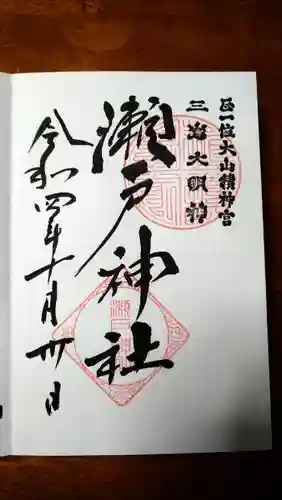 正一位大山積神宮
三嶌大明神
瀬戸神社
令和四年十月卅日